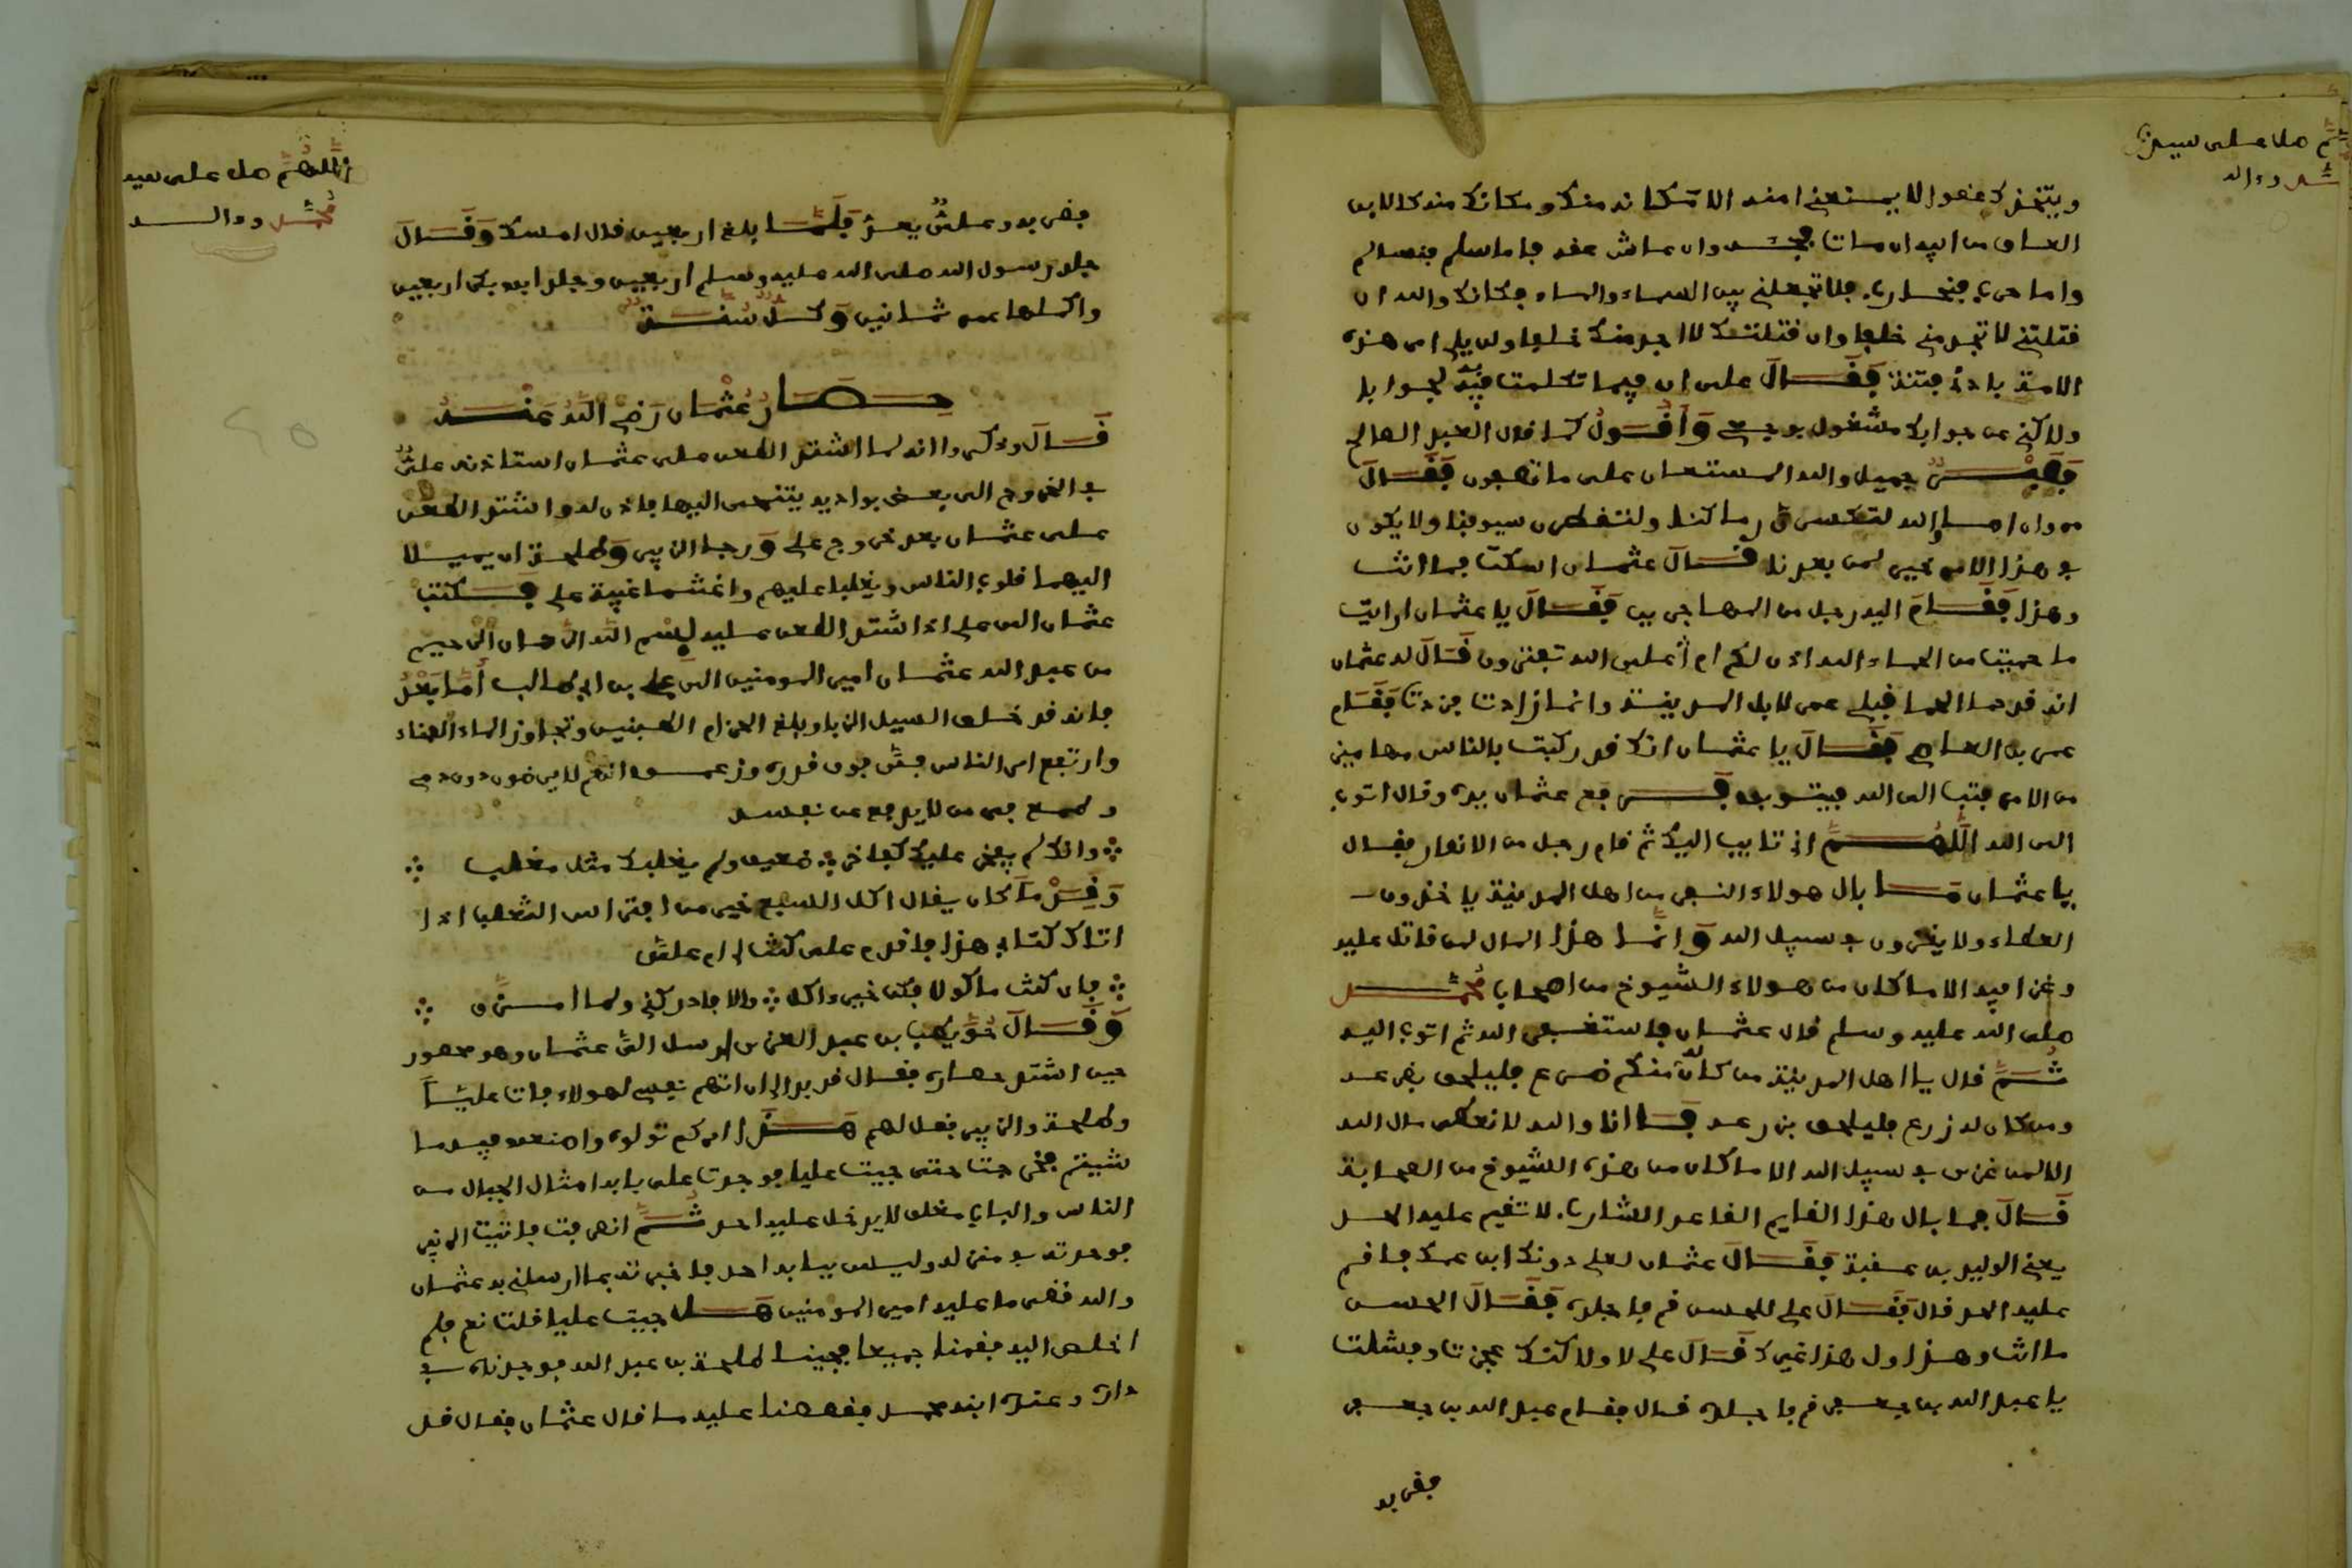 اللهم صل على سيدنا
محمد وءاله
ويتخذك عضدا لا يستغني منه الا مكانه منك ومكانك منه كالابن
العاق من ابيه ان مات فجعه وان عاش عقه فاما سلم فنسالم
واما حرب فنحارب فلا تجعلني بين السماء والماء فكانك والله ان
قتلتني لا تجد مني خلفا وان قتلتك لا اجد منك خلفا ولن يلي امر هذه
الامة بادئ فتنة فقال علي ان فيما تكلمت فيه لجوابا
ولاكني عن جوابك مشغول بوجعي واقول كما قال العبد الصالح
فصبر جميل والله المستعان على ما تصفون فقال
مروان اما والله لتكسرن رماحنا ولنقطعن سيوفنا ولا يكون
في هذا الامر خير لمن بعدنا قال عثمان اسكت فما انت
وهذا فقام اليه رجل من المهاجرين فقال يا عثمان ارايت
ما حميت من الحماء الله اذن لكم ام أعلى الله تفترون قال له عثمان
انه قد حما الحما قبلي عمر لابل المدينة وانما زادت فزدت فقام
عمر بن العاص فقال يا عثمان انك قد ركبت بالناس مهامين
من الامر فتب الى الله فيتوبوا فرفع عثمان يده وقال اتوب
الى الله اللهم اني تايب اليك ثم قام رجل من الانصار فقال
يا عثمان ما بال هولاء النفر من اهل المدينة ياخذون
العطاء ولا يغزون في سبيل الله وانما هذا المال لمن قاتل عليه
وغزا فيه الا ما كان من هولاء الشيوخ من اصحاب محمد
صلى الله عليه وسلم قال عثمان فاستغفر الله ثم اتوب اليه
ثم قال يا اهل المدينة من كان له منكم ضرع فليلحق بضرعه
ومن كان له زرع فليلحق بزرعه فانا والله لا نعطي مال الله
الا لمن غزى في سبيل الله الا ما كان من هذه الشيوخ من الصحابة
قال فما بال هذا القايم القاعد الشارب لا تقيم عليه الحد
يعني الوليد بن عقبة فقال عثمان لعلي دونك ابن عمك فاقم
عليه الحد قال فقال علي للحسن قم فاجلده فقال الحسن
ما انت وهذا ول هذا غيرك قال علي لا ولاكنك عجزت وفشلت
يا عبد الله بن جعفر قم فاجلده قال فقام عبد الله بن جعفر
فضربه
اللهم صل على سيدنا
محمد وءاله
فضربه وعلي يعد فلما بلغ اربعين قال امسك وقال
جلد رسول الله صلى الله عليه وسلم اربعين وجلد ابو بكر اربعين
واكملها عمر ثمانين وكل سنة
حصار عثمان رضي الله عنه
قال وذكروا انه لما اشتد الطعن على عثمان استاذنه علي
في الخروج الى بعض بواديه يتنحى اليها فاذن له واشتد الطعن
على عثمان بعد خروج علي ورجا الزبير وطلحة ان يميلا
اليهما قلوب الناس ويغلبا عليهم واغتنما غيبة علي فكتب
عثمان الى علي اذ اشتد الطعن عليه بسم الله الرحمان الرحيم
من عبد الله عثمان امير المومنين الى علي بن ابي طالب أما بعد
فانه قد خلف السيل الزبا وبلغ الحزام الطبيين وتجاوز الماء العناء
وارتفع امر الناس في فوق قدره وزعموا انهم لا يرضون دون دمي
وطمع في من لا يدفع عن نفسه
وانك لم يفخر عليك كفاخر ضعيف ولم يغلبك مثل مغلب
وقد ما كان يقال اكل السبع خير من افتراس الثعلب اذا
اتاك كتابي هذا فاقدم علي كنت لي ام علي
فان كنت ماكولا فكن خير ءاكل والا فادركني ولما امزق
وقال حويطب بن عبد العزى ارسل الي عثمان وهو محصور
حين اشتد حصاره فقال قد بدا لي ان اتهم نفسي لهولاء فات عليا
وطلحة والزبير فقل لهم هذا امركم تولوه واصنعوا فيه ما
شيتم فخرجت حتى جيت عليا فوجدت على بابه امثال الجبال من
الناس والباب مغلق لا يدخل عليه احد ثم انصرفت فاتيت الزبير
فوجدته في منزله وليس ببابه احد فاخبرته بما ارسلني به عثمان
والله قضى ما عليه امير المومنين هل جيت عليا قلت نعم فلم
اخلص اليه فقمنا جميعا فجينا طلحة بن عبيد الله فوجدناه في
داره وعنده ابنه محمد فقصصنا عليه ما قال عثمان فقال قد